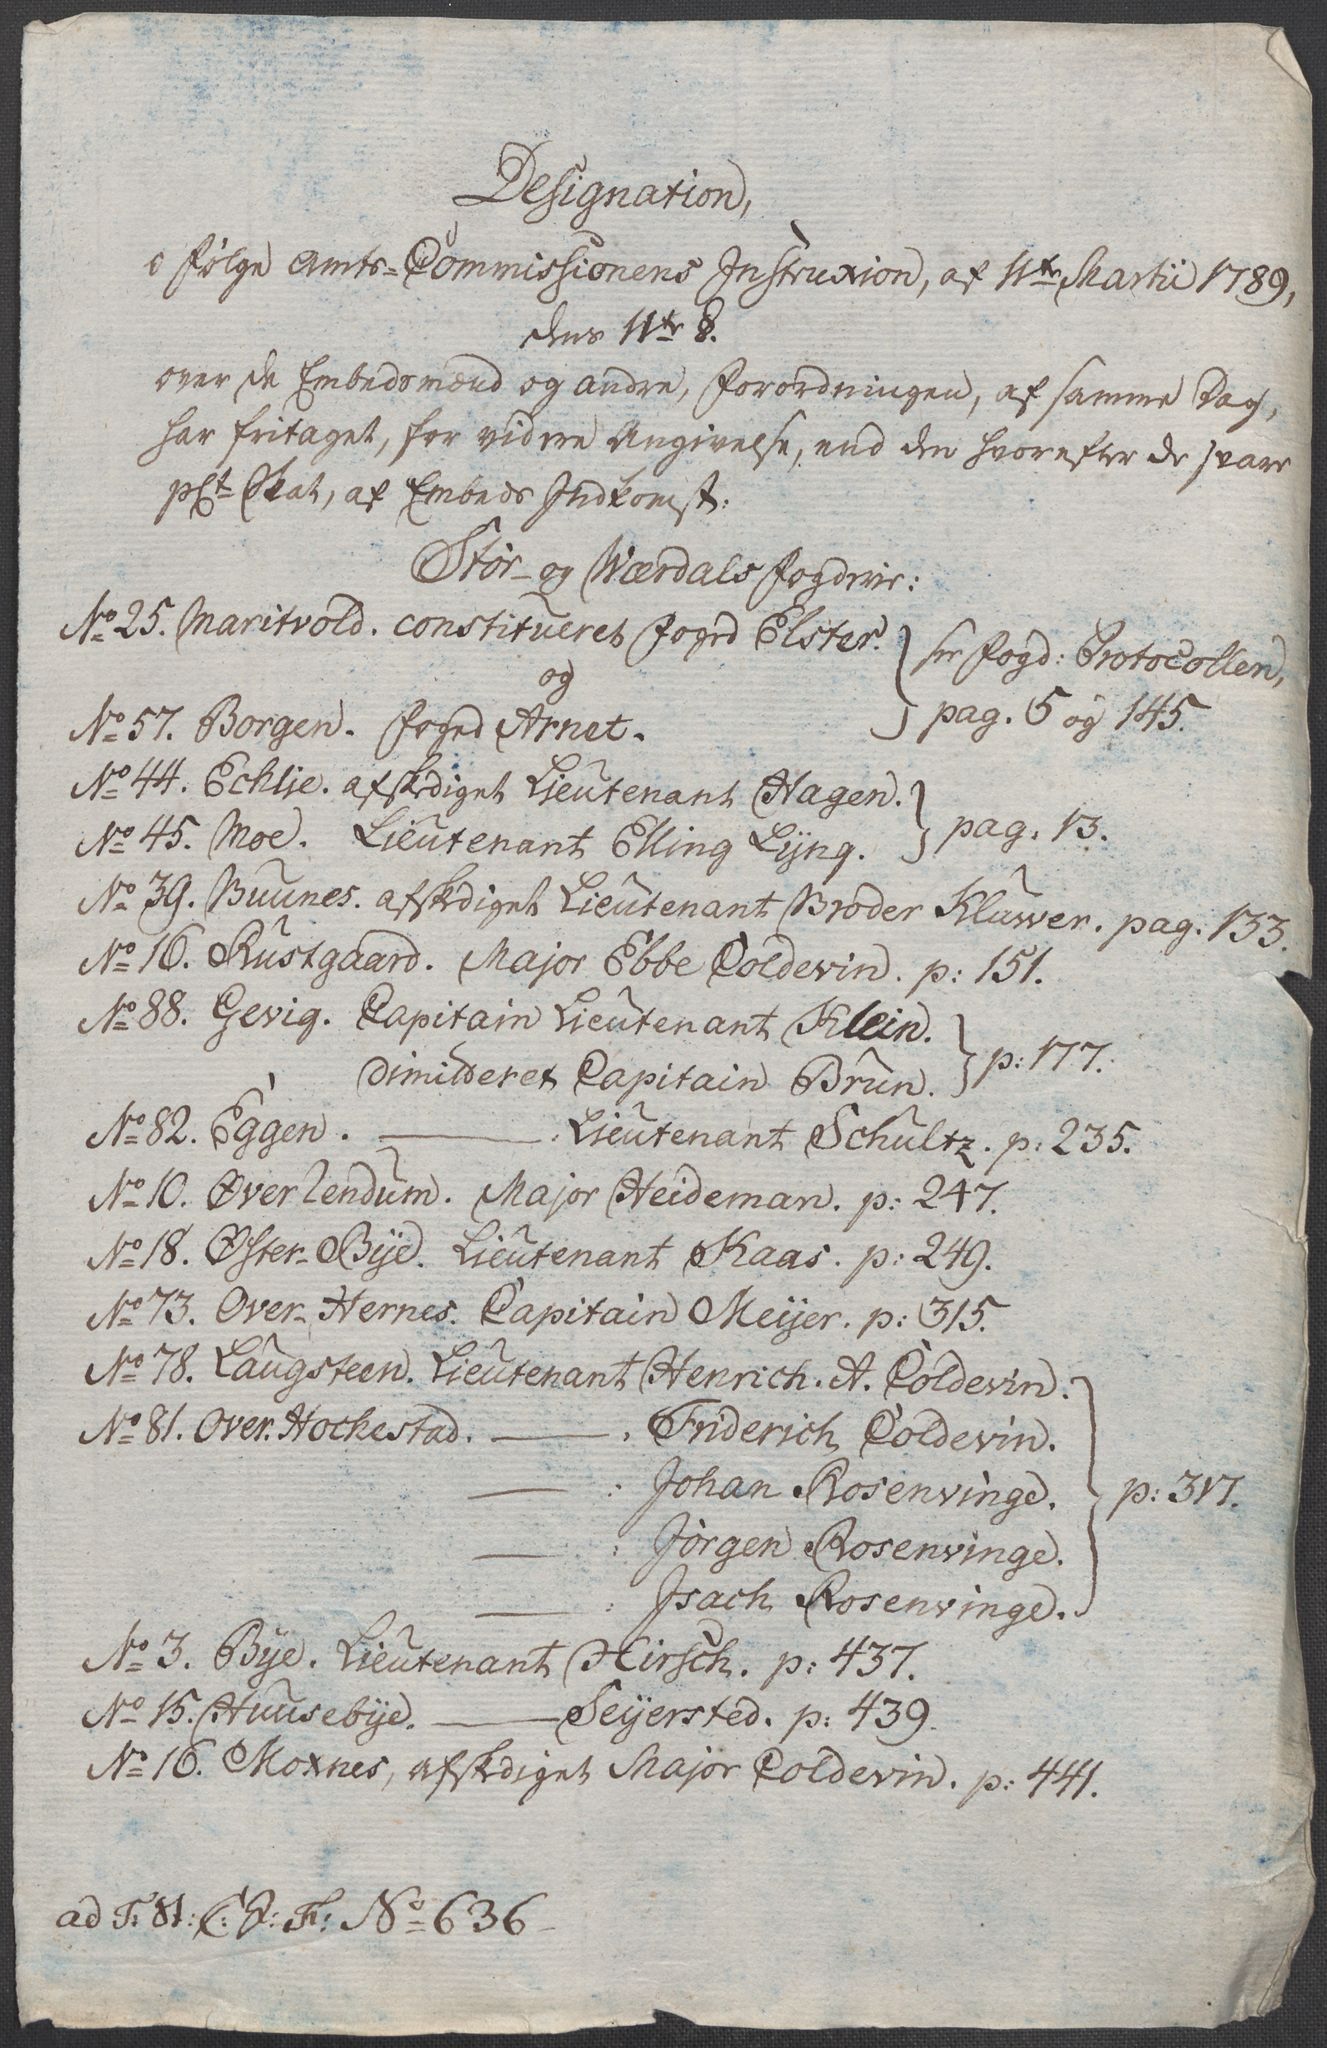 Designation,
i følge Amts-Commissionens Instruxion, af 11te Martii 1789,
dens 11te §.
over de Embedsmænd og andre, Forordningen, af samme Dag,
har fritaget, for vidre Angivelse, end den hvorefter de svare
pCt Skat, af Embeds Indkomst:
Stör- og Værdals Fogderie:
No 25. Maritvold. constitueret Foged Elster. } see Fogd: Protocollen,
og
No 57. Borgen. Foged Arnet. } pag. 5 og 145.
No 44. Echlie. afskediget Lieutenant Hagen. }
No 45. Moe. Lieutenant Elling Lyng. } pag. 13.
No 39. Buunes. afskediget Lieutenant Broder Kluwer. pag. 133.
No 16. Rustgaard. Major Ebbe Coldevin. p: 151.
No 88. Gevig. Capitain Lieutenant Klein. }
dimitteret Capitain Brun. } p: 177.
No 82. Eggen. ——— . Lieutenant Schultz. p: 235.
No 10. Øverlendum. Major Heideman. p: 247.
No 18. Øster-Bye. Lieutenant Kaas. p: 249.
No 73. Over-Hernes. Capitain Meijer. p: 315.
No 78. Laugsteen. Lieutenant Henrich. A. Coldevin. }
No 81. Over. Hockestad. ——— . Friderich Coldevin.
—— : Johan Rosenvinge. } p: 317.
—— : Jörgen Rosenvinge.
—— : Isach Rosenvinge.
No 3. Bye. Lieutenant Hirsch. p: 437.
No 15. Huusebye. ——— Seijersted. p: 439.
No 16. Moxnes, afskediget Major Coldevin. p: 441.
ad T. 81: No 636